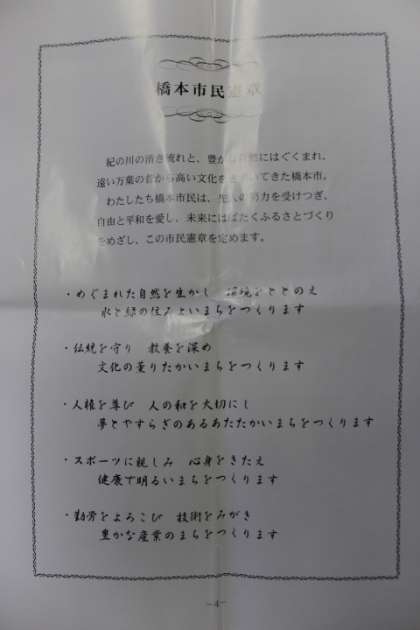 橋本市民憲章
紀の川の清き流れと、豊かな自然にはぐくまれ、
遠い万葉の昔から高い文化をきずいてきた橋本市。
わたしたち橋本市民は、先人の努力を受けつぎ、
自由と平和を愛し、未来にはばたくふるさとづくり
をめざし、この市民憲章を定めます。
・めぐまれた自然を生かし 環境をととのえ
水と緑の住みよいまちをつくります
・伝統を守り 教養を深め
文化の薫りたかいまちをつくります
・人権を尊び 人の和を大切にし
夢とやすらぎのあるあたたかいまちをつくります
・スポーツに親しみ 心身をきたえ
健康で明るいまちをつくります
・勤労をよろこび 技術をみがき
豊かな産業のまちをつくります
−4−